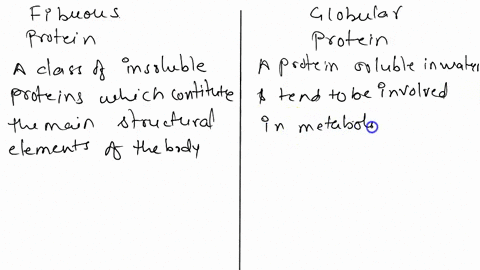 Fibuous
Protein
A class of insoluble
proteins which contitute
the main structural
elements of the body
Globular
Protein
A protein soluble in water
& tend to be involved
in metabolo